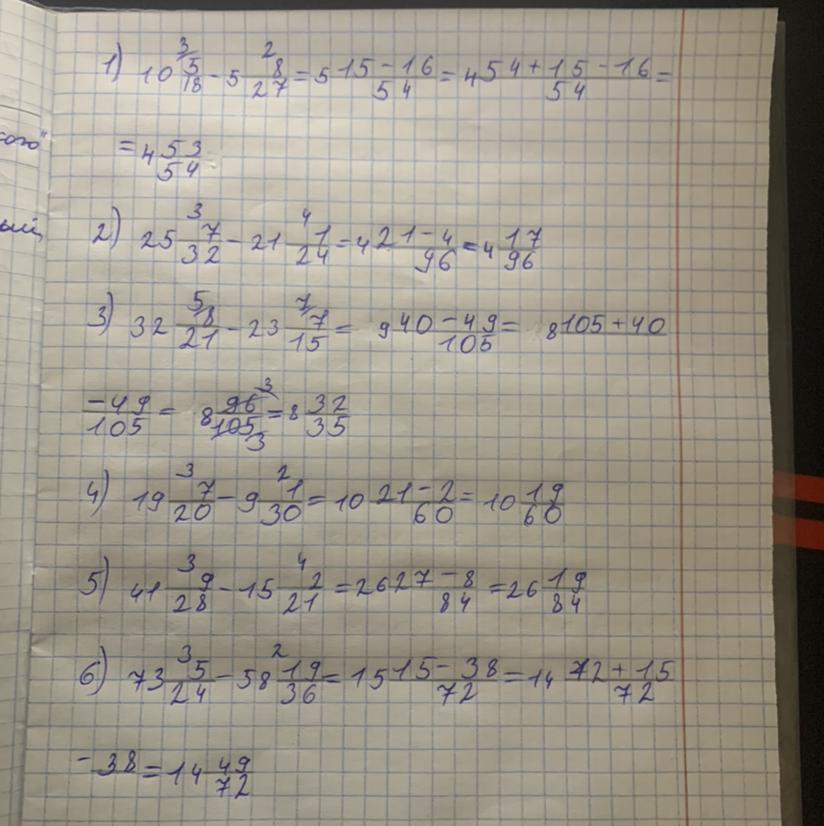 ого"
ый,
1) 10 5/18 - 5 8/27 = 5 (15 - 16)/54 = 4 (54 + 15 - 16)/54 =
= 4 53/54
2) 25 7/32 - 21 1/24 = 4 (21 - 4)/96 = 4 17/96
3) 32 8/21 - 23 7/15 = 9 (40 - 49)/105 = 8 105 + 40
- 49/105 = 8 96/105 = 8 32/35
4) 19 7/20 - 9 1/30 = 10 (21 - 2)/60 = 10 19/60
5) 41 9/28 - 15 2/21 = 26 (27 - 8)/84 = 26 19/84
6) 73 5/24 - 58 19/36 = 15 (15 - 38)/72 = 14 (72 + 15)/72
- 38 = 14 49/72